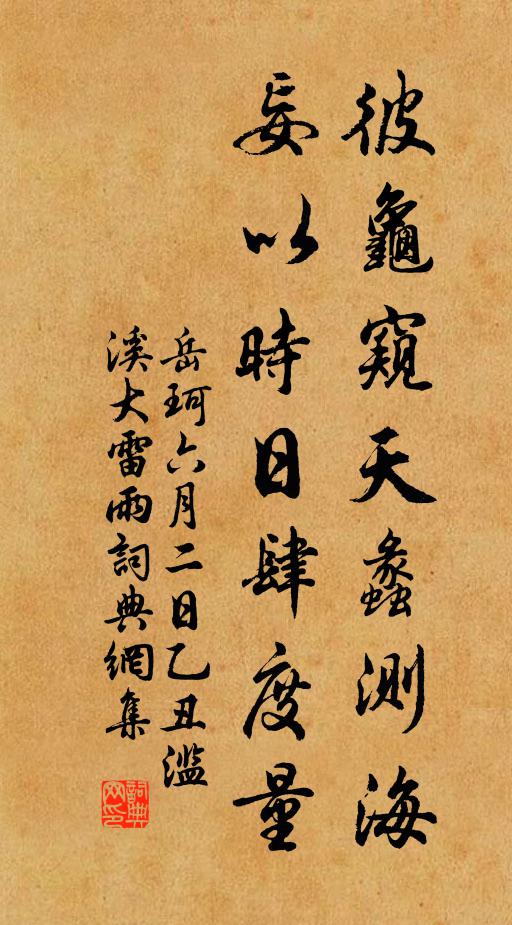 彼龜窺天蠡測海
妄以時日肆度量
岳珂六月二日乙丑濫
溪大雷雨詞典網集
詞典
网印